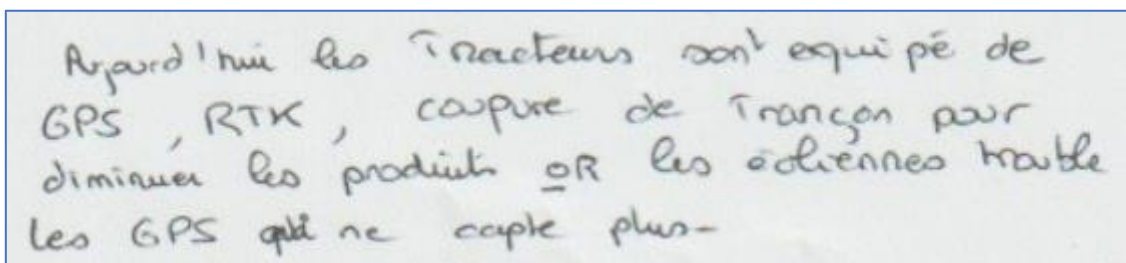 Aujourd'hui les Tracteurs sont equipé de
GPS, RTK, coupure de Trançon pour
diminuer les produits OR les éoliennes trouble
les GPS qui ne capte plus-